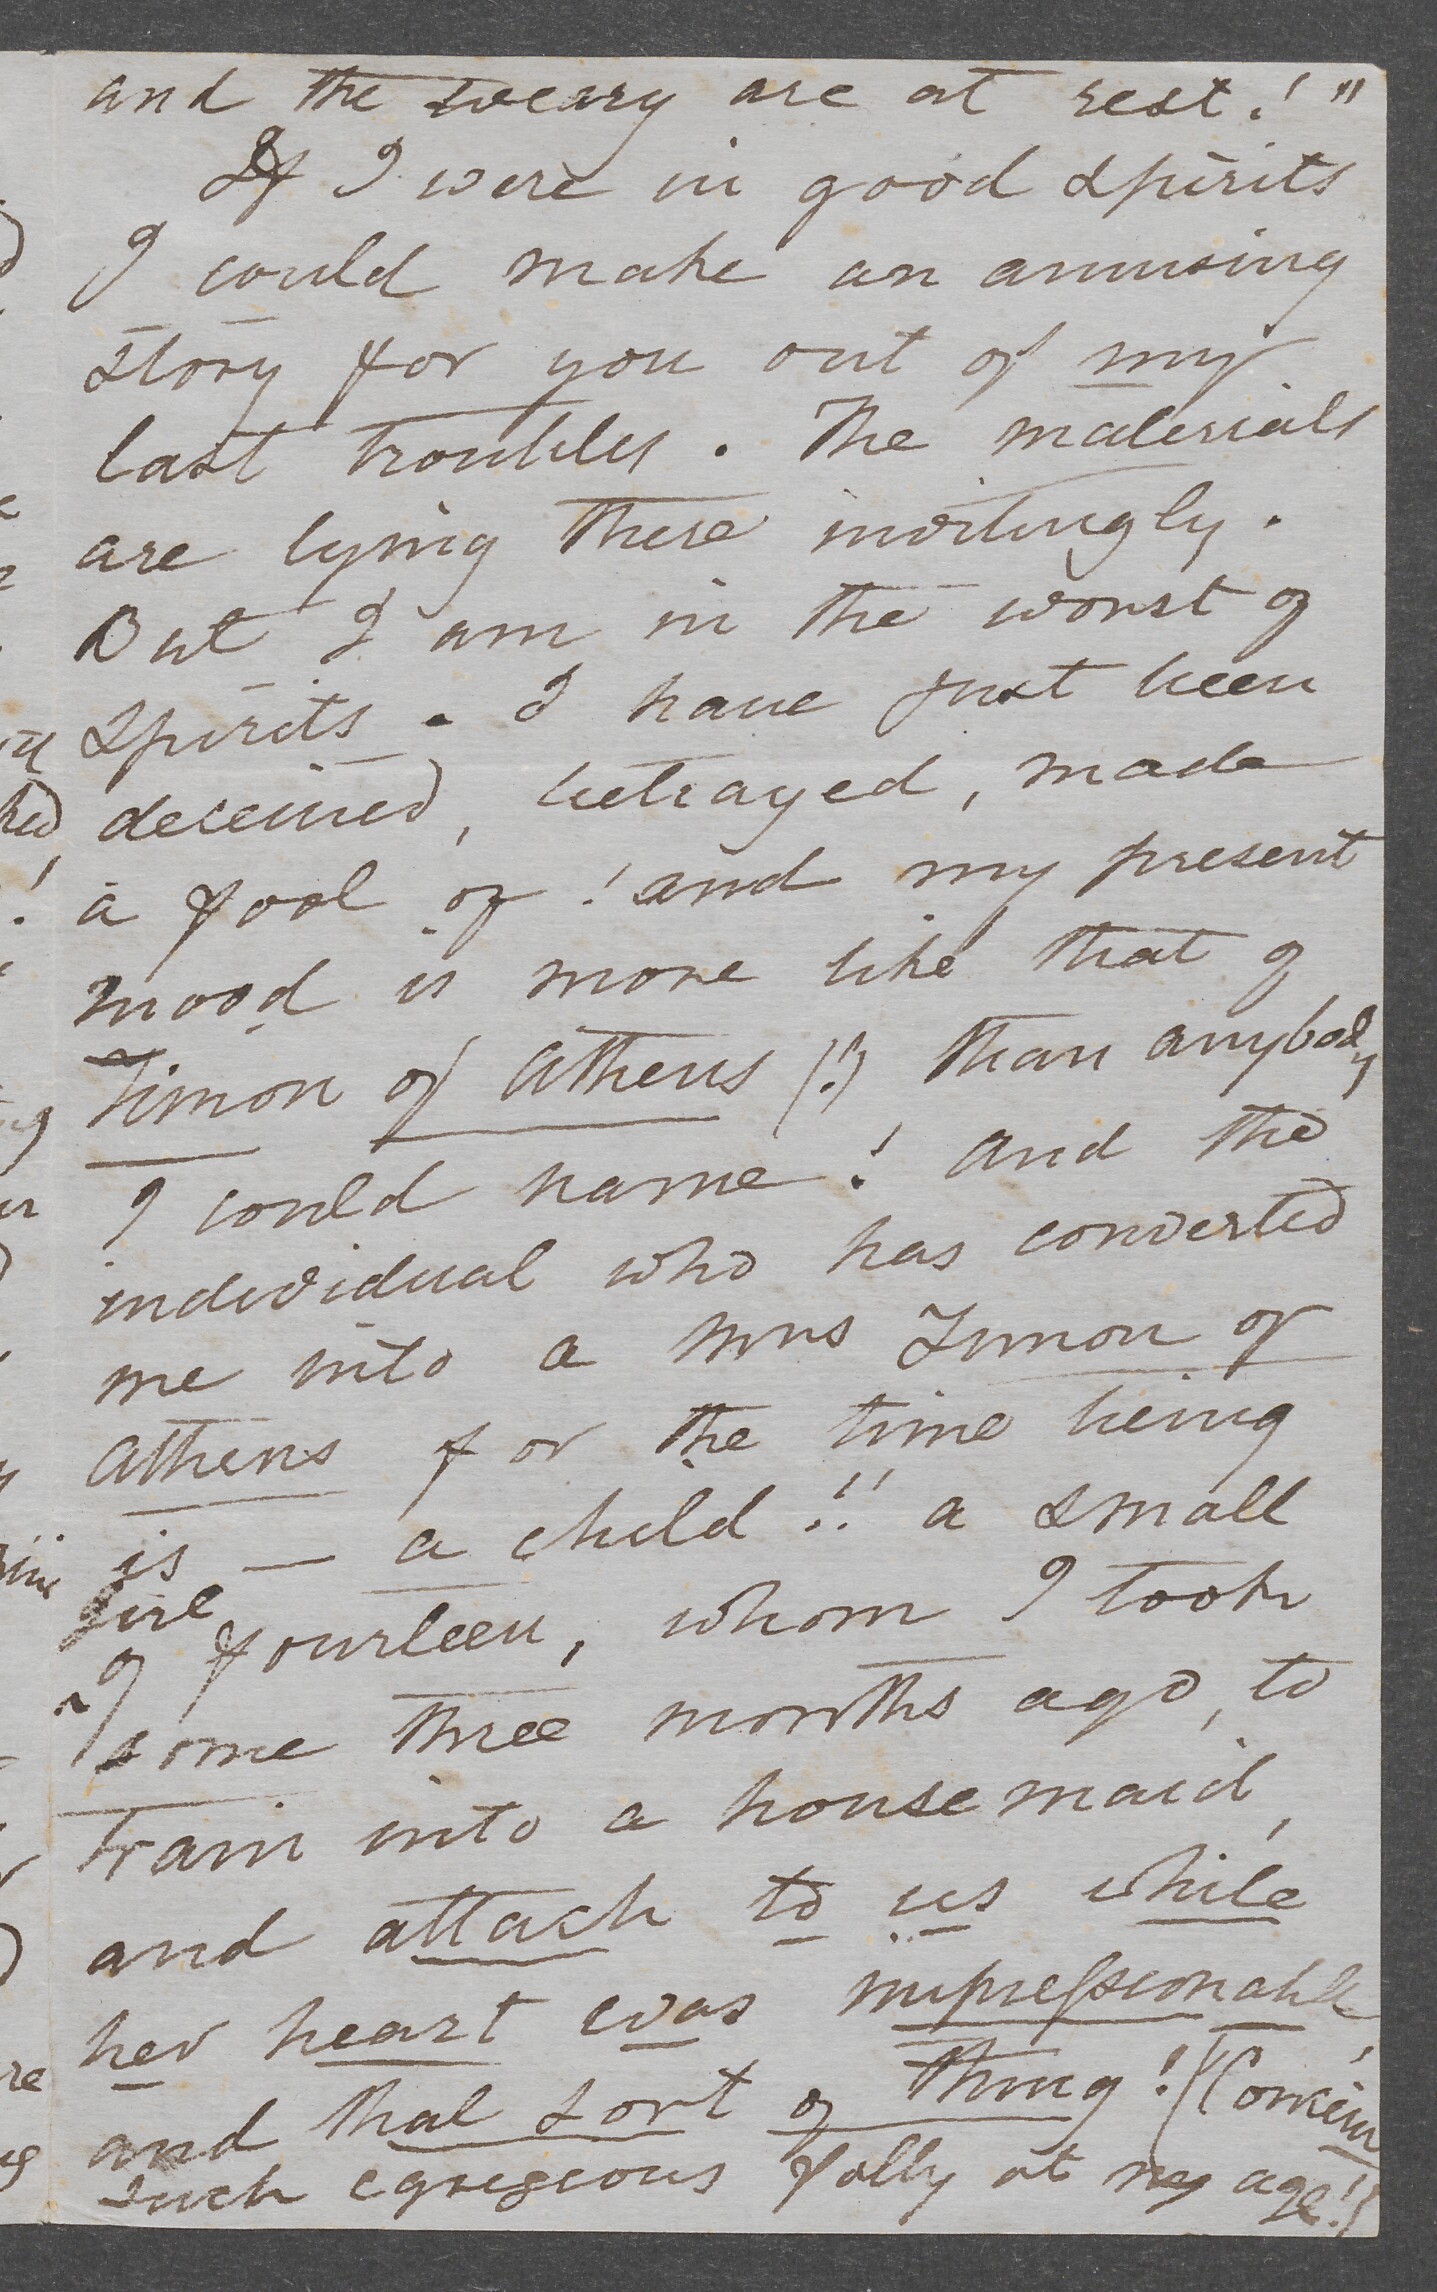 and the weary are at rest!"
If I were in good spirits
I could make an amusing
story for you out of my
last troubles. The materials
are lying there invitingly.
But I am in the worst of
spirits. I have just been
deceived, betrayed, made
a fool of! and my present
mood is more like that of
Timon of Athens (!) than anybody
I could name! And the
individual who has converted
me into a Mrs Timon of
Athens for the time being
is — a child!! a small
girl
of fourteen, whom I took
some three months ago, to
train into a housemaid,
and attach to us while
her heart was impressionable,
and that sort of thing! (Conceive
such egregious folly at my age!)